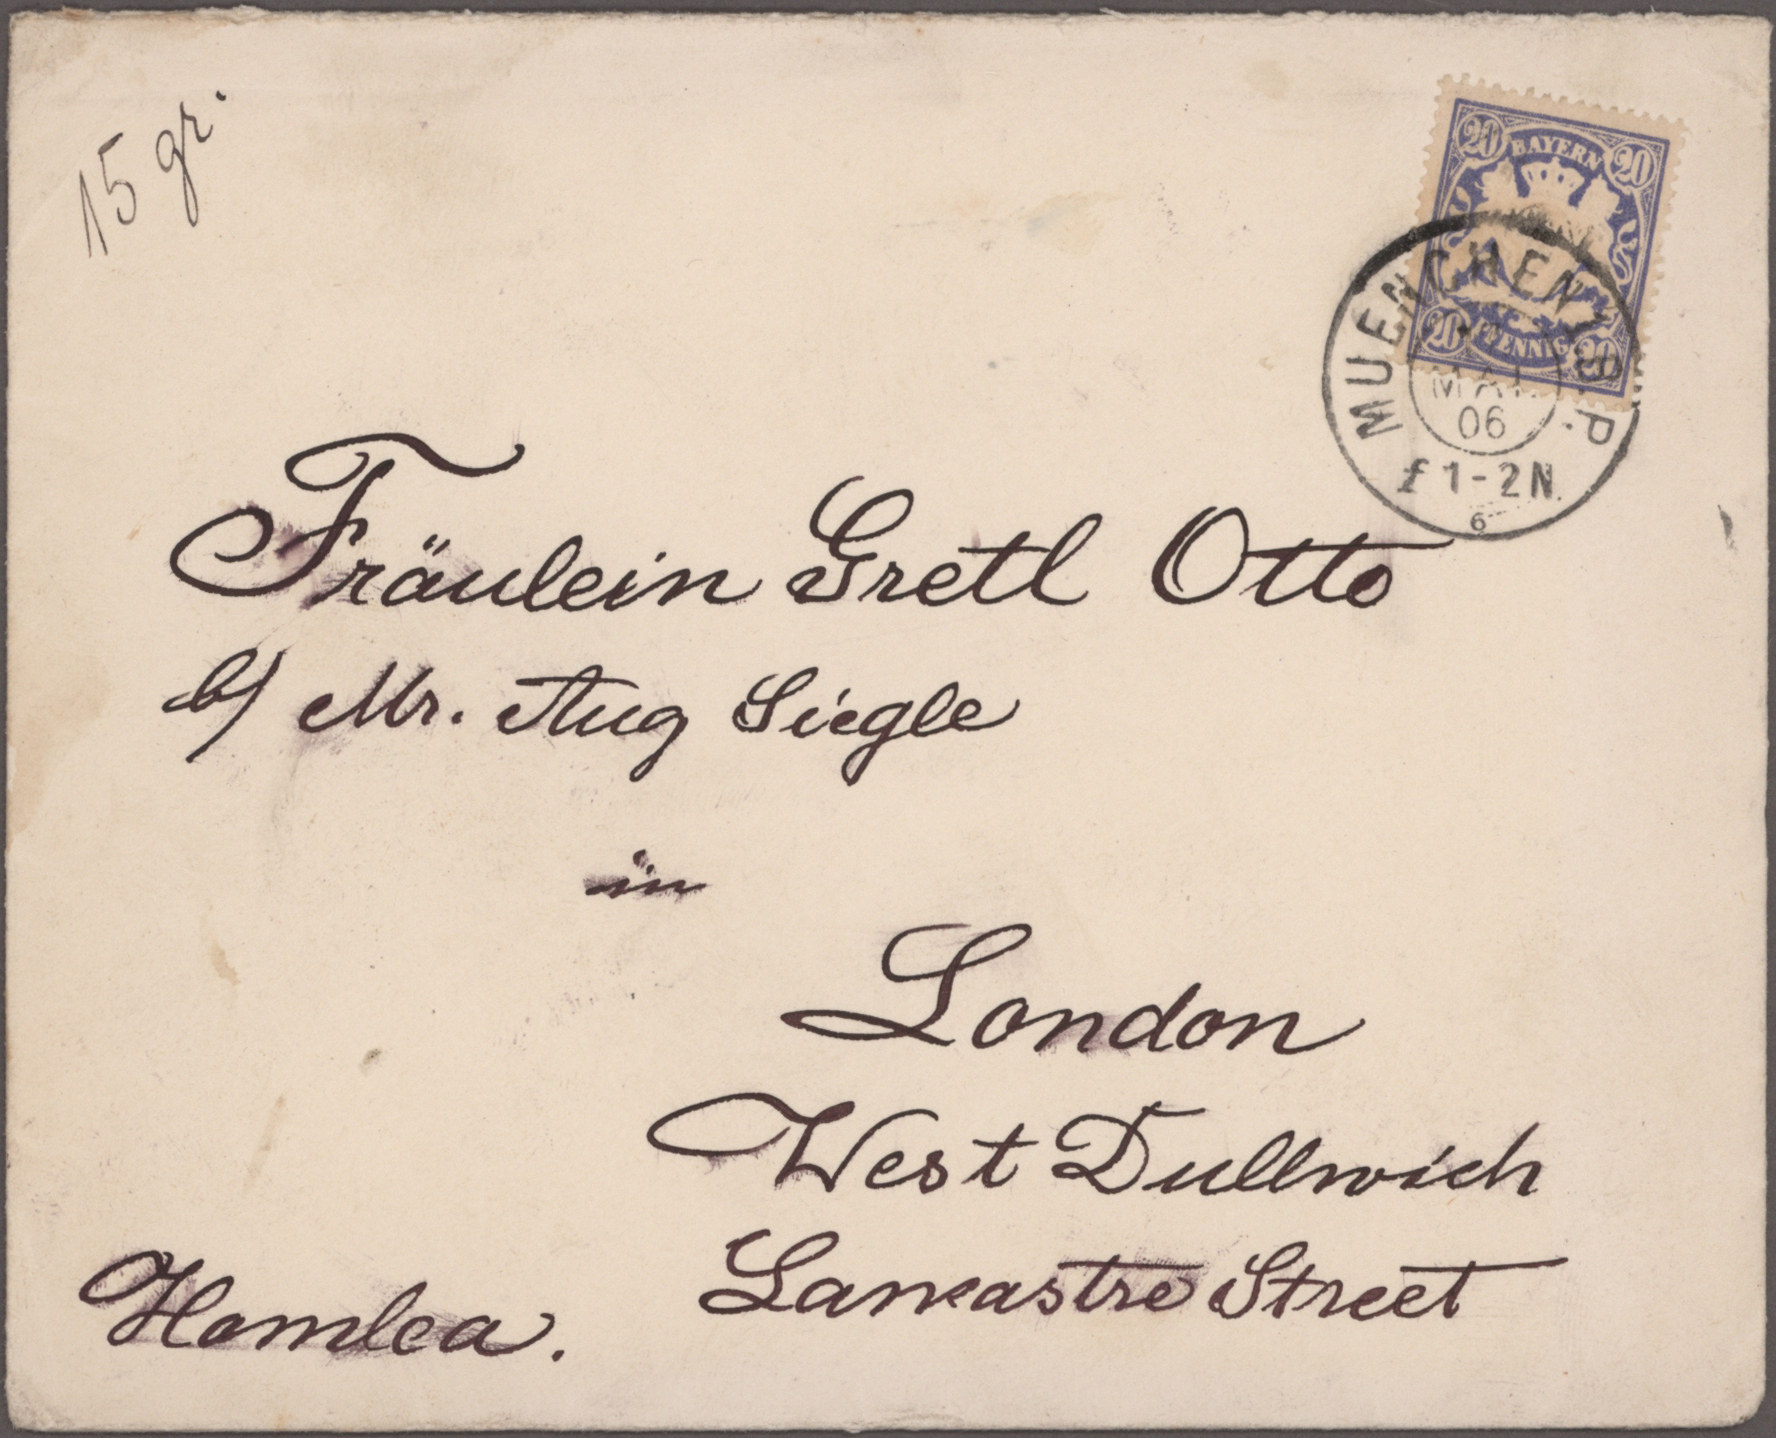 15 gr.
20 BAYERN 20
20 PFENNIG 20
MUENCHEN B.P.
MAI
06
f 1-2N.
6
Fräulein Gretl Otto
b/ Mr. Aug Siegle
in
London
West Dullwich
Lancastre Street
Homlea.